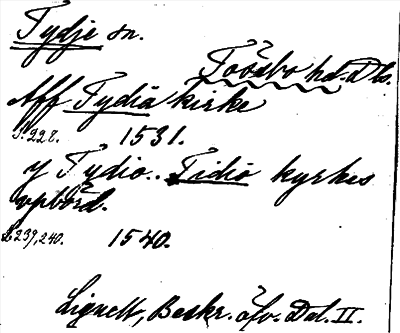 Tydje sn.
Tössbo hd. Ds.
Aff Tydiä kirke
S. 228. 1531.
y Tydio.. Tidiö kyrkes
vpbörd.
S 239, 240. 1540.
Lignell, Beskr. öfv. Dal. II.